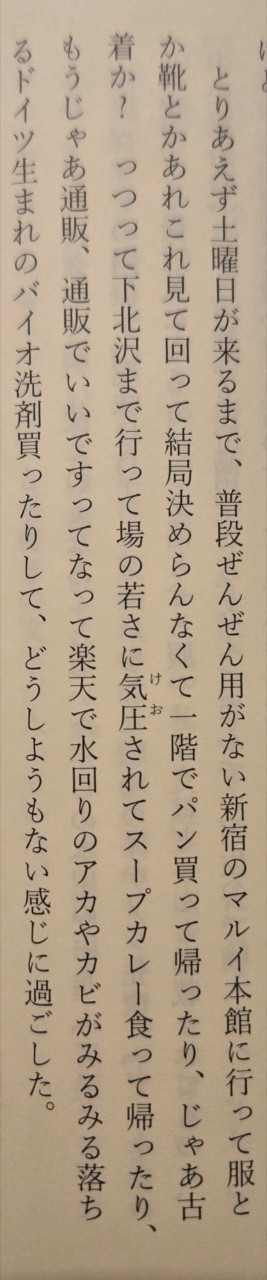 とりあえず土曜日が来るまで、普段ぜんぜん用がない新宿のマルイ本館に行って服と
か靴とかあれこれ見て回って結局決めらんなくて一階でパン買って帰ったり、じゃあ古
着か? っつって下北沢まで行って場の若さに気圧されてスープカレー食って帰ったり、
けお
もうじゃあ通販、通販でいいですってなって楽天で水回りのアカやカビがみるみる落ち
るドイツ生まれのバイオ洗剤買ったりして、どうしようもない感じに過ごした。